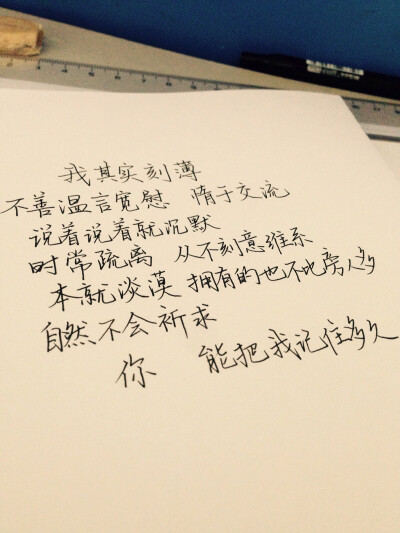 我其实刻薄
不善温言宽慰 惰于交流
说着说着就沉默
时常疏离 从不刻意维系
本就淡漠 拥有的也不比旁人多
自然不会祈求
你 能把我记住多久